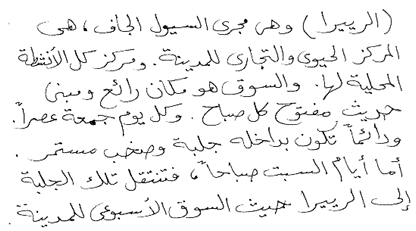 (الرييرا) وهى مجرى السيول الجاف، هى
المركز الحيوى والتجارى للمدينة. ومركز كل الأنشطة
المحلية لها. والسوق هو مكان رائع ومبنى
حديث مفتوح كل صباح. وكل يوم جمعة عصراً.
ودائماً تكون بداخله جلبة وصخب مستمر.
أما أيام السبت صباحاً، فتنتقل تلك الجلبة
إلى الرييرا حيث السوق الأسبوعى للمدينة.